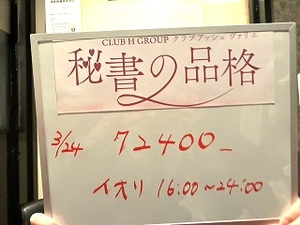 CLUB H GROUP クラブアッシュ ヴァリエ
秘書の品格
3/24 72400_
イオリ 16:00~24:00